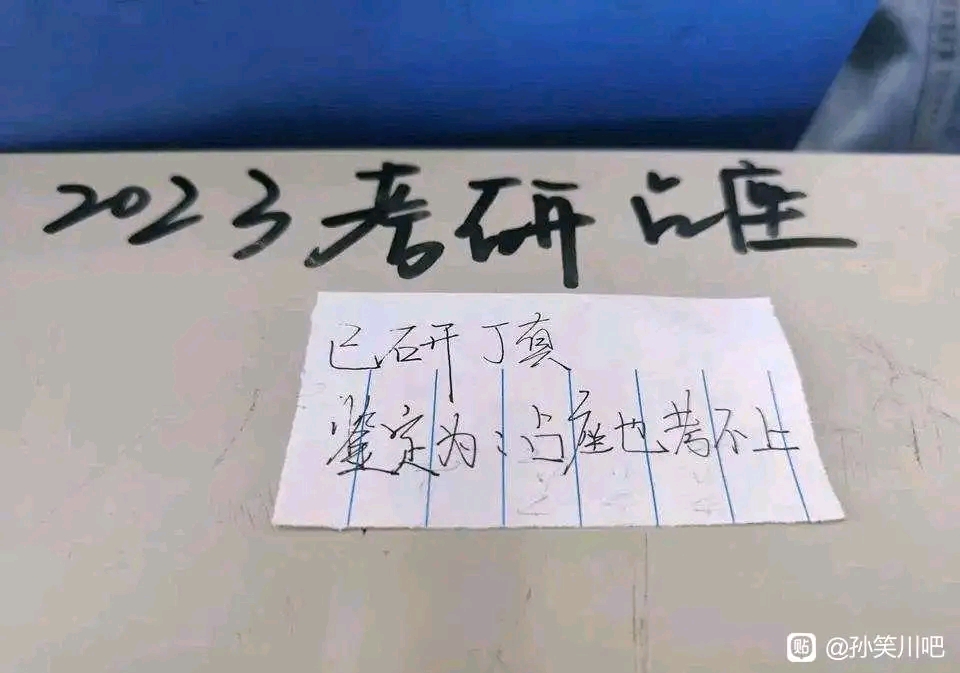 2023考研占座
已研丁真
鉴定为：占座也考不上
贴 @孙笑川吧